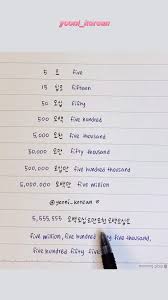 yeoni_korean
5 오 five
15 십오 fifteen
50 오십 fifty
500 오백 five hundred
5,000 오천 five thousand
50,000 오만 fifty thousand
500,000 오십만 five hundred thousand
5,000,000 오백만 five million
@yeoni_korean
5,555,555 오백오십오만오천오백오십오
five million, five hundred fifty five thousand,
five hundred fifty five